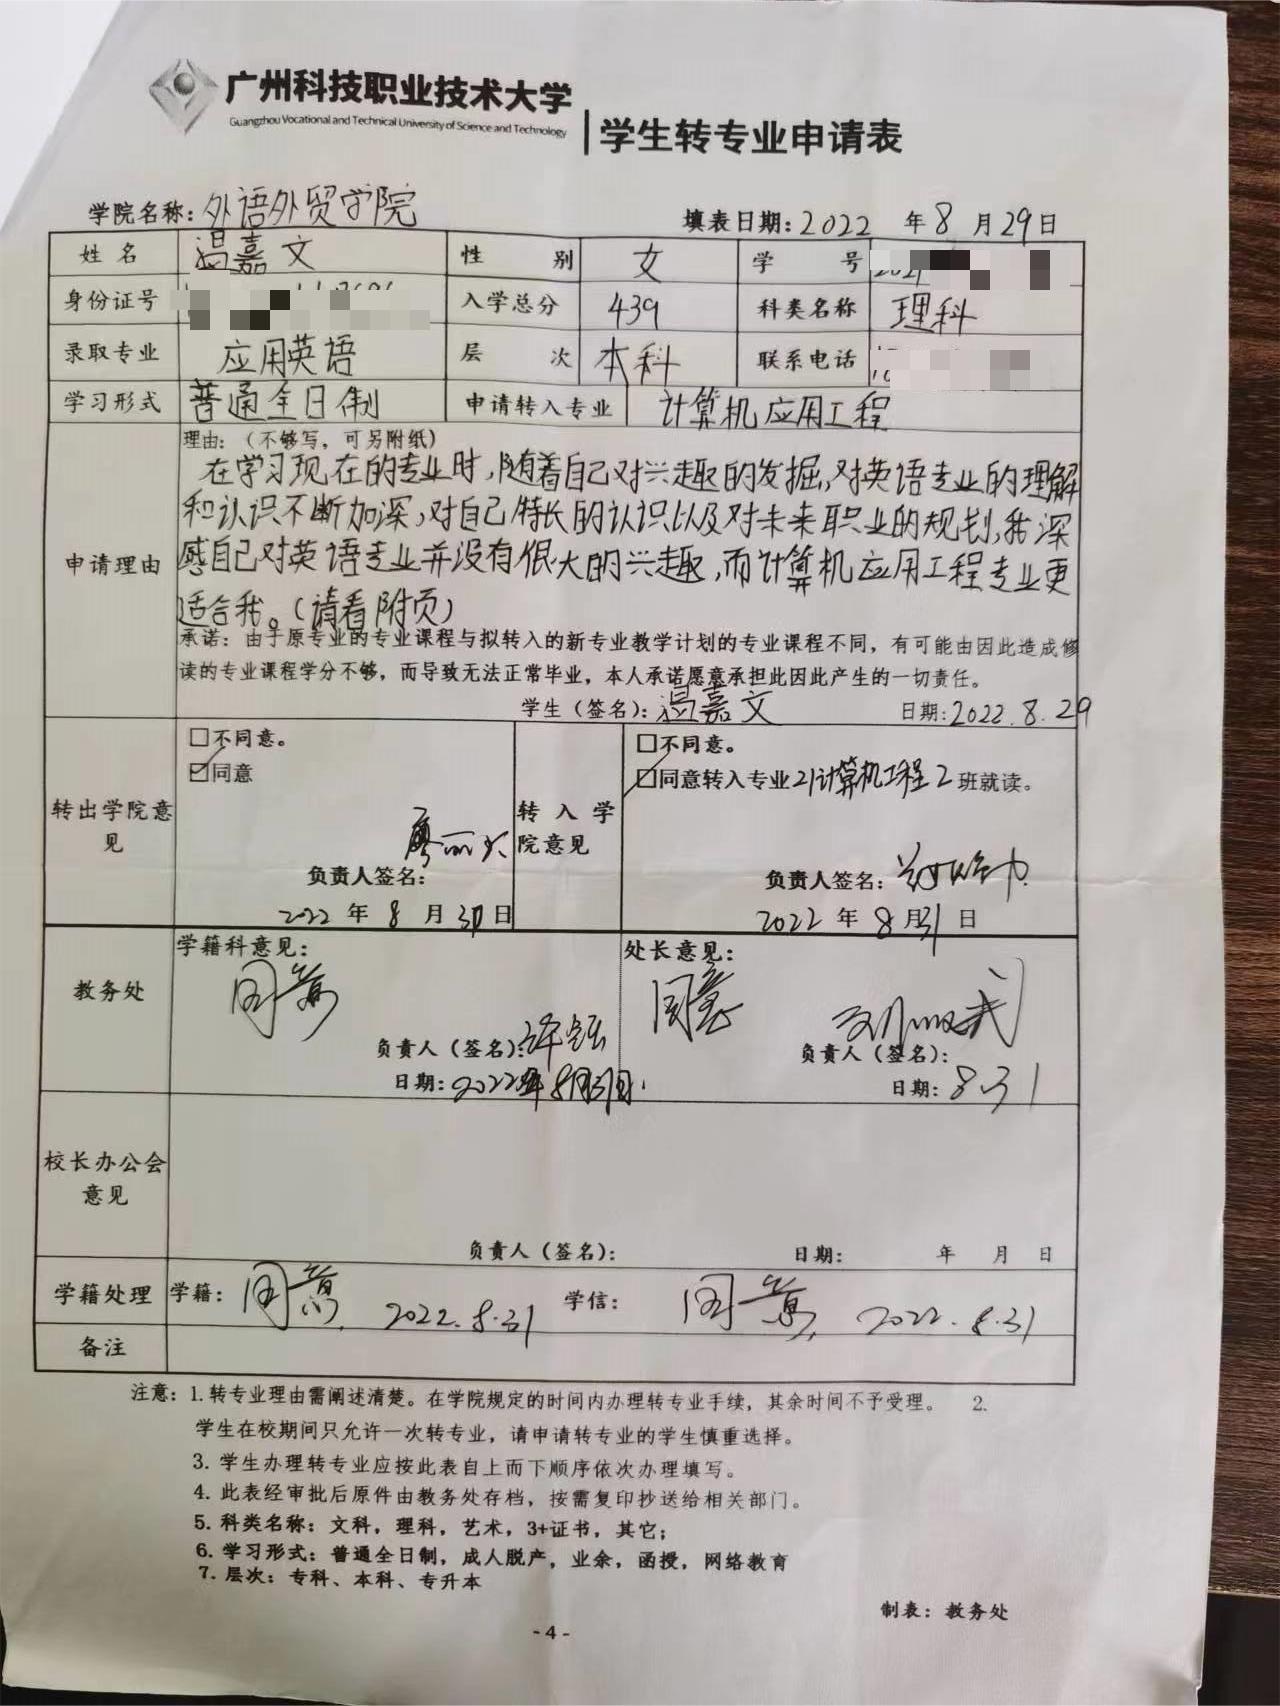 广州科技职业技术大学
Guangzhou Vocational and Technical University of Science and Technology
学生转专业申请表
学院名称：外语外贸学院 填表日期：2022 年 8 月 29 日
姓名 温嘉文 性别 女 学号
身份证号 入学总分 439 科类名称 理科
录取专业 应用英语 层次 本科 联系电话
学习形式 普通全日制 申请转入专业 计算机应用工程
理由：（不够写，可另附纸）
在学习现在的专业时，随着自己对兴趣的发掘，对英语专业的理解
和认识不断加深，对自己特长的认识以及对未来职业的规划，我深
申请理由 感自己对英语专业并没有很大的兴趣，而计算机应用工程专业更
适合我。（请看附页）
承诺：由于原专业的专业课程与拟转入的新专业教学计划的专业课程不同，有可能由因此造成修
读的专业课程学分不够，而导致无法正常毕业，本人承诺愿意承担此因此产生的一切责任。
学生（签名）：温嘉文 日期：2022.8.29
转出学院意见
□不同意。
☑同意
负责人签名：
2022 年 8 月 30 日
转入学院意见
□不同意。
☑同意转入专业21计算机工程2班就读。
负责人签名：
2022 年 8 月 31 日
教务处
学籍科意见：
同意
负责人（签名）：
日期：2022年8月31日
处长意见：
同意
负责人（签名）：
日期：8.31
校长办公会
意见
负责人（签名）： 日期： 年 月 日
学籍处理 学籍： 2022.8.31 学信： 2022.8.31
备注
注意：1.转专业理由需阐述清楚。在学院规定的时间内办理转专业手续，其余时间不予受理。 2.
学生在校期间只允许一次转专业，请申请转专业的学生慎重选择。
3. 学生办理转专业应按此表自上而下顺序依次办理填写。
4. 此表经审批后原件由教务处存档，按需复印抄送给相关部门。
5. 科类名称：文科，理科，艺术，3+证书，其它；
6. 学习形式：普通全日制，成人脱产，业余，函授，网络教育
7. 层次：专科、本科、专升本
制表：教务处
- 4 -